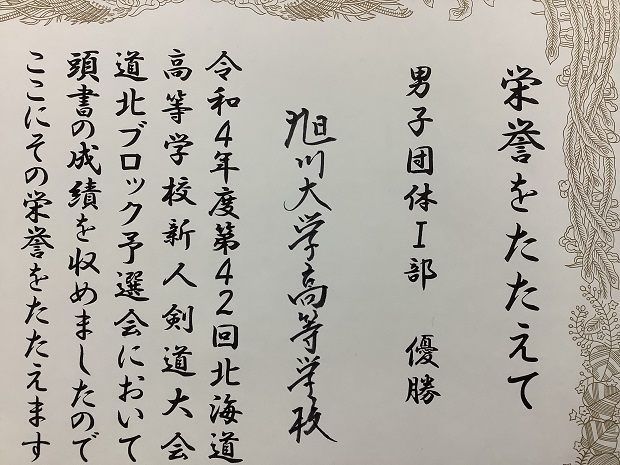 栄誉をたたえて
男子団体Ⅰ部　優勝
旭川大学高等学校
令和4年度第42回北海道
高等学校新人剣道大会
道北ブロック予選会において
頭書の成績を収めましたので
ここにその栄誉をたたえます